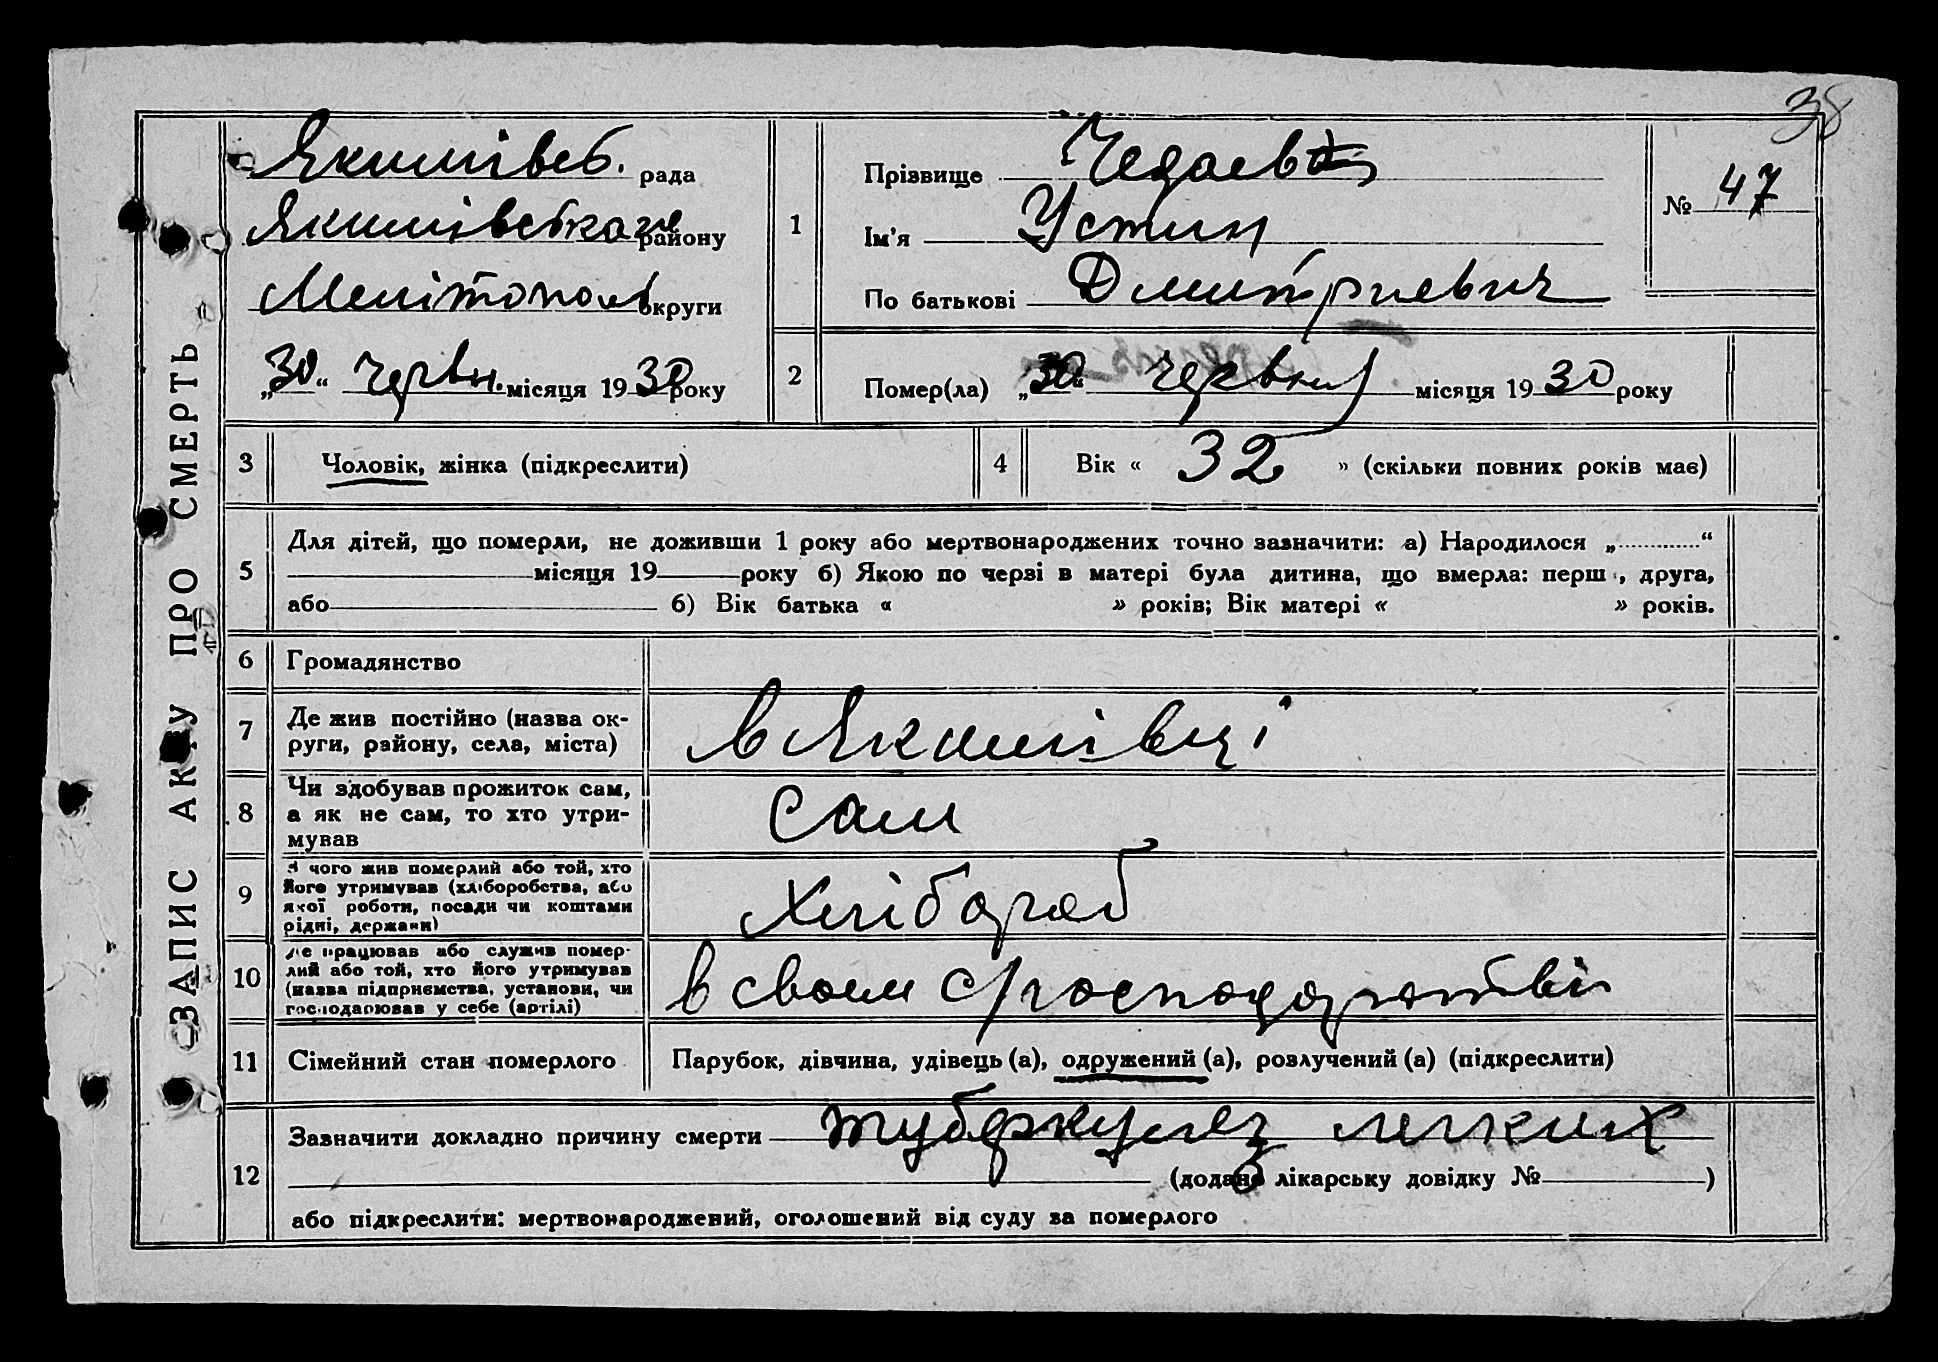 38
ЗАПИС АКТУ ПРО СМЕРТЬ
Якимівсь. рада
Якимівського району
Мелітополь округи
„30“ Червн. місяця 1930 року
1
Прізвище Чедаев
Ім'я Устин
По батькові Дмитриевич
№ 47
2
Помер(ла) „30“ червня місяця 1930 року
3 Чоловік, жінка (підкреслити)
4 Вік « 32 » (скільки повних років має)
5
Для дітей, що померли, не доживши 1 року або мертвонароджених точно зазначити: а) Народилося „ “
місяця 19 року б) Якою по черзі в матері була дитина, що вмерла: перш , друга,
або б) Вік батька « » років; Вік матері « » років.
6 Громадянство
7
Де жив постійно (назва ок-
руги, району, села, міста)
в Якимівці
8
Чи здобував прожиток сам,
а як не сам, то хто утри-
мував
Сам
9
З чого жив померлий або той, хто
його утримував (хліборобства, або
якої роботи, посади чи коштами
рідні, держави)
Хлібороб
10
Де працював або служив помер-
лий або той, хто його утримував
(назва підприємства, установи, чи
господарював у себе (артілі)
в своем с/господарстві
11 Сімейний стан померлого Парубок, дівчина, удівець (а), одружений (а), розлучений (а) (підкреслити)
12
Зазначити докладно причину смерти туберкулез легких
(додано лікарську довідку № )
або підкреслити: мертвонароджений, оголошений від суду за померлого